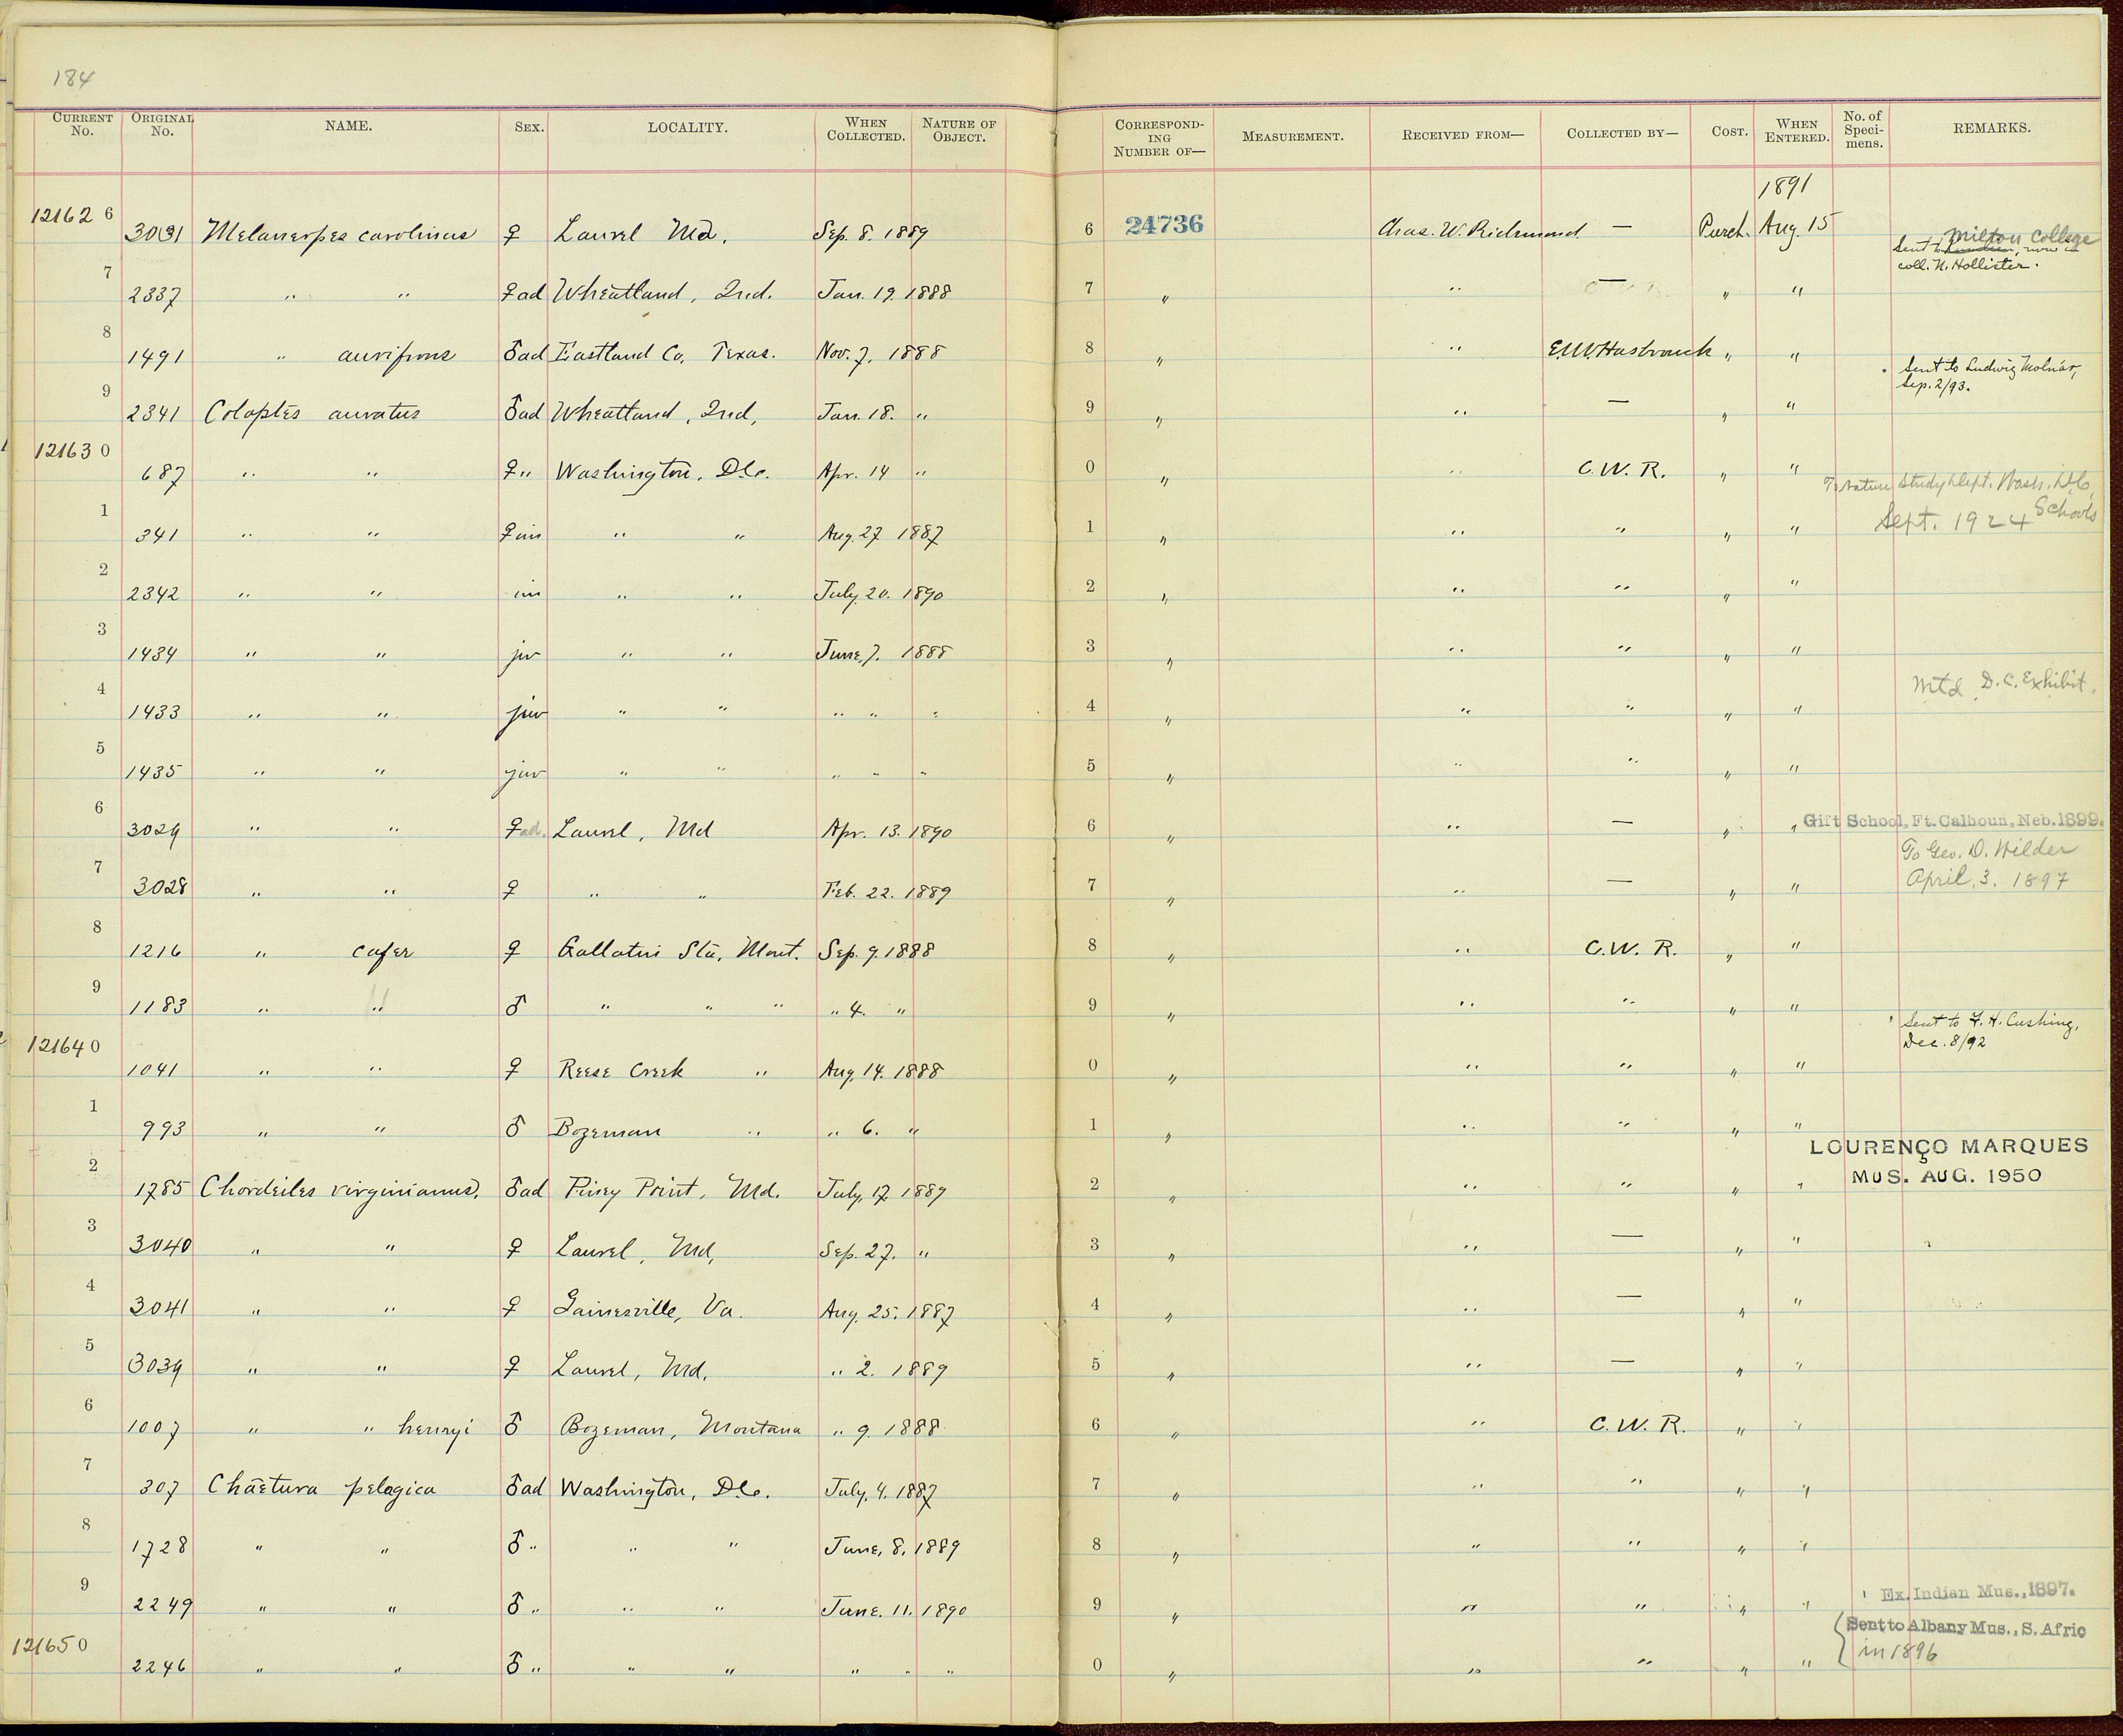 184
CURRENT No. ORIGINAL No. NAME. SEX. LOCALITY. WHEN COLLECTED. NATURE OF OBJECT. CORRESPONDING NUMBER OF— MEASUREMENT. RECEIVED FROM— COLLECTED BY— COST. WHEN ENTERED. No. of Specimens. REMARKS.
1891
121626 3031 Melanerpes carolinus ♀ Laurel Md. Sep. 8. 1889 6 24736 Chas. W. Richmond — Purch. Aug. 15 Milton College
Sent to now in
coll. N. Hollister.
7 2337 " " ♀ad Wheatland, Ind. Jan. 19. 1888 7 " " — " "
8 1491 " aurifrons ♂ad Eastland Co, Texas. Nov. 7. 1888 8 " " E.M. Hasbrouck " " Sent to Ludwig Molnár,
Sep. 2/93.
9 2341 Colaptes auratus ♂ad Wheatland, Ind, Jan. 18. " 9 " " — " "
121630 687 " " ♀" Washington, D.C. Apr. 14 " 0 " " C.W.R. " " To Nature Study Dept. Wash. D.C.
Schools
1 341 " " ♀im " " Aug. 27 1887 1 " " " " " Sept. 1924
2 2342 " " im " " July. 20. 1890 2 " " " " "
3 1434 " " juv " " June, 7. 1888 3 " " " " "
4 1433 " " juv " " " " " 4 " " " " " Mtd. D.C. Exhibit.
5 1435 " " juv " " " " " 5 " " " " "
6 3029 " " ♀ad. Laurel, Md Apr. 13. 1890 6 " " — " " Gift School, Ft. Calhoun, Neb. 1899.
7 3028 " " ♀ " " Feb. 22. 1889 7 " " — " " To Geo. D. Wilder
April. 3. 1897
8 1216 " cafer ♀ Gallatin Sta, Mont. Sep. 9. 1888 8 " " C.W.R. " "
9 1183 " " ♂ " " " " 4. " 9 " " " " " Sent to F. H. Cushing,
Dec. 8/92
121640 1041 " " ♀ Reese Creek " Aug. 14. 1888 0 " " " " "
1 993 " " ♂ Bozeman " " 6. " 1 " " " " "
2 1785 Chordeiles virginianus, ♂ad Piney Point, Md. July, 17 1889 2 " " " " " LOURENÇO MARQUES
MUS. AUG. 1950
3 3040 " " ♀ Laurel, Md, Sep. 27. " 3 " " — " "
4 3041 " " ♀ Gainesville, Va. Aug. 25. 1887 4 " " — " "
5 3039 " " ♀ Laurel, Md. " 2. 1889 5 " " — " "
6 1007 " " henryi ♂ Bozeman, Montana " 9. 1888 6 " " C.W.R. " "
7 307 Chaetura pelagica ♂ad Washington, D.C. July, 4. 1887 7 " " " " "
8 1728 " " ♂" " " June, 8. 1889 8 " " " " "
9 2249 " " ♂" " " June. 11. 1890 9 " " " " " Ex. Indian Mus., 1897.
121650 2246 " " ♂" " " " " " 0 " " " " " Sent to Albany Mus., S. Afric
in 1896